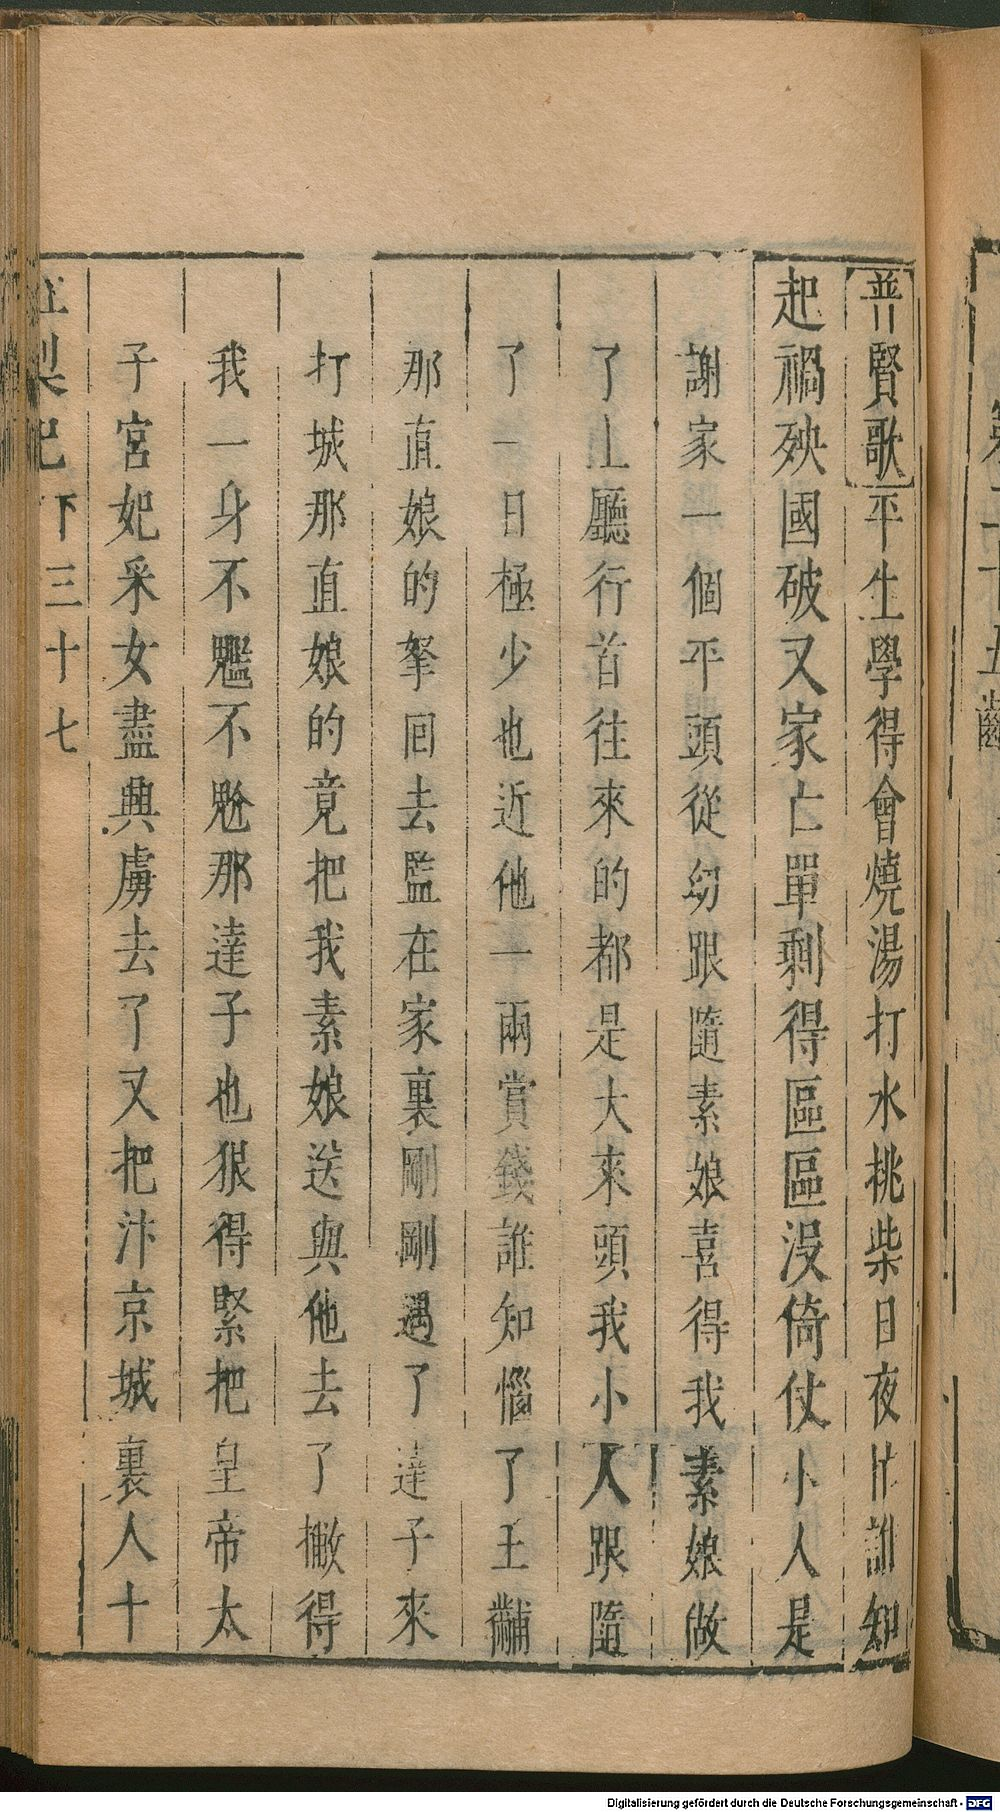 普賢歌平生學得會燒湯打水挑柴日夜忙誰知
起禍殃國破又家亡單剩得區區沒倚仗小人是
謝家一個平頭從幼跟隨素娘喜得我素娘做
了上廳行首往來的都是大來頭我小人跟隨
了一日極少也近他一兩賞錢誰知惱了王黼
那直娘的拏回去監在家裏剛剛遇了達子來
打城那直娘的竟把我素娘送與他去了撇得
我一身不尷不尬那達子也狠得緊把皇帝太
子宮妃采女盡興虜去了又把汴京城裏人十
梨記下三十七
Digitalisierung gefördert durch die Deutsche Forschungsgemeinschaft - DFG